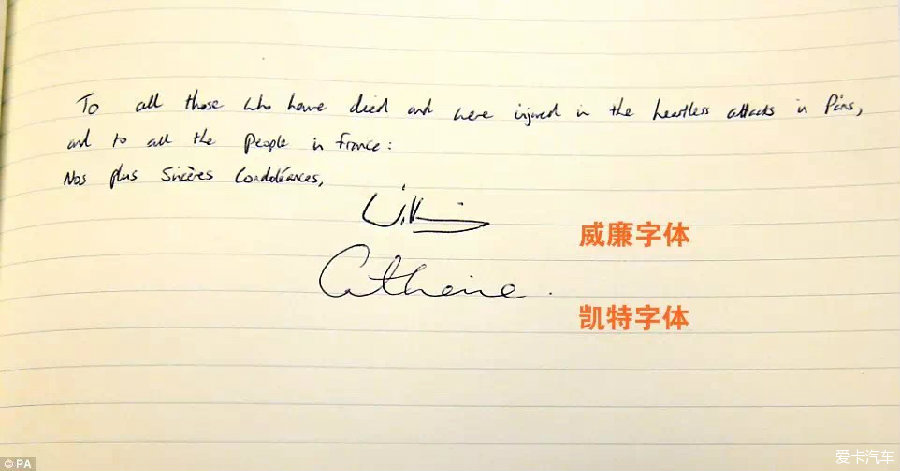 To all those who have died and were injured in the heartless attacks in Paris,
and to all the people in France:
Nos plus Sincères Condoléances,
William
威廉字体
Catherine.
凯特字体
© PA
爱卡汽车